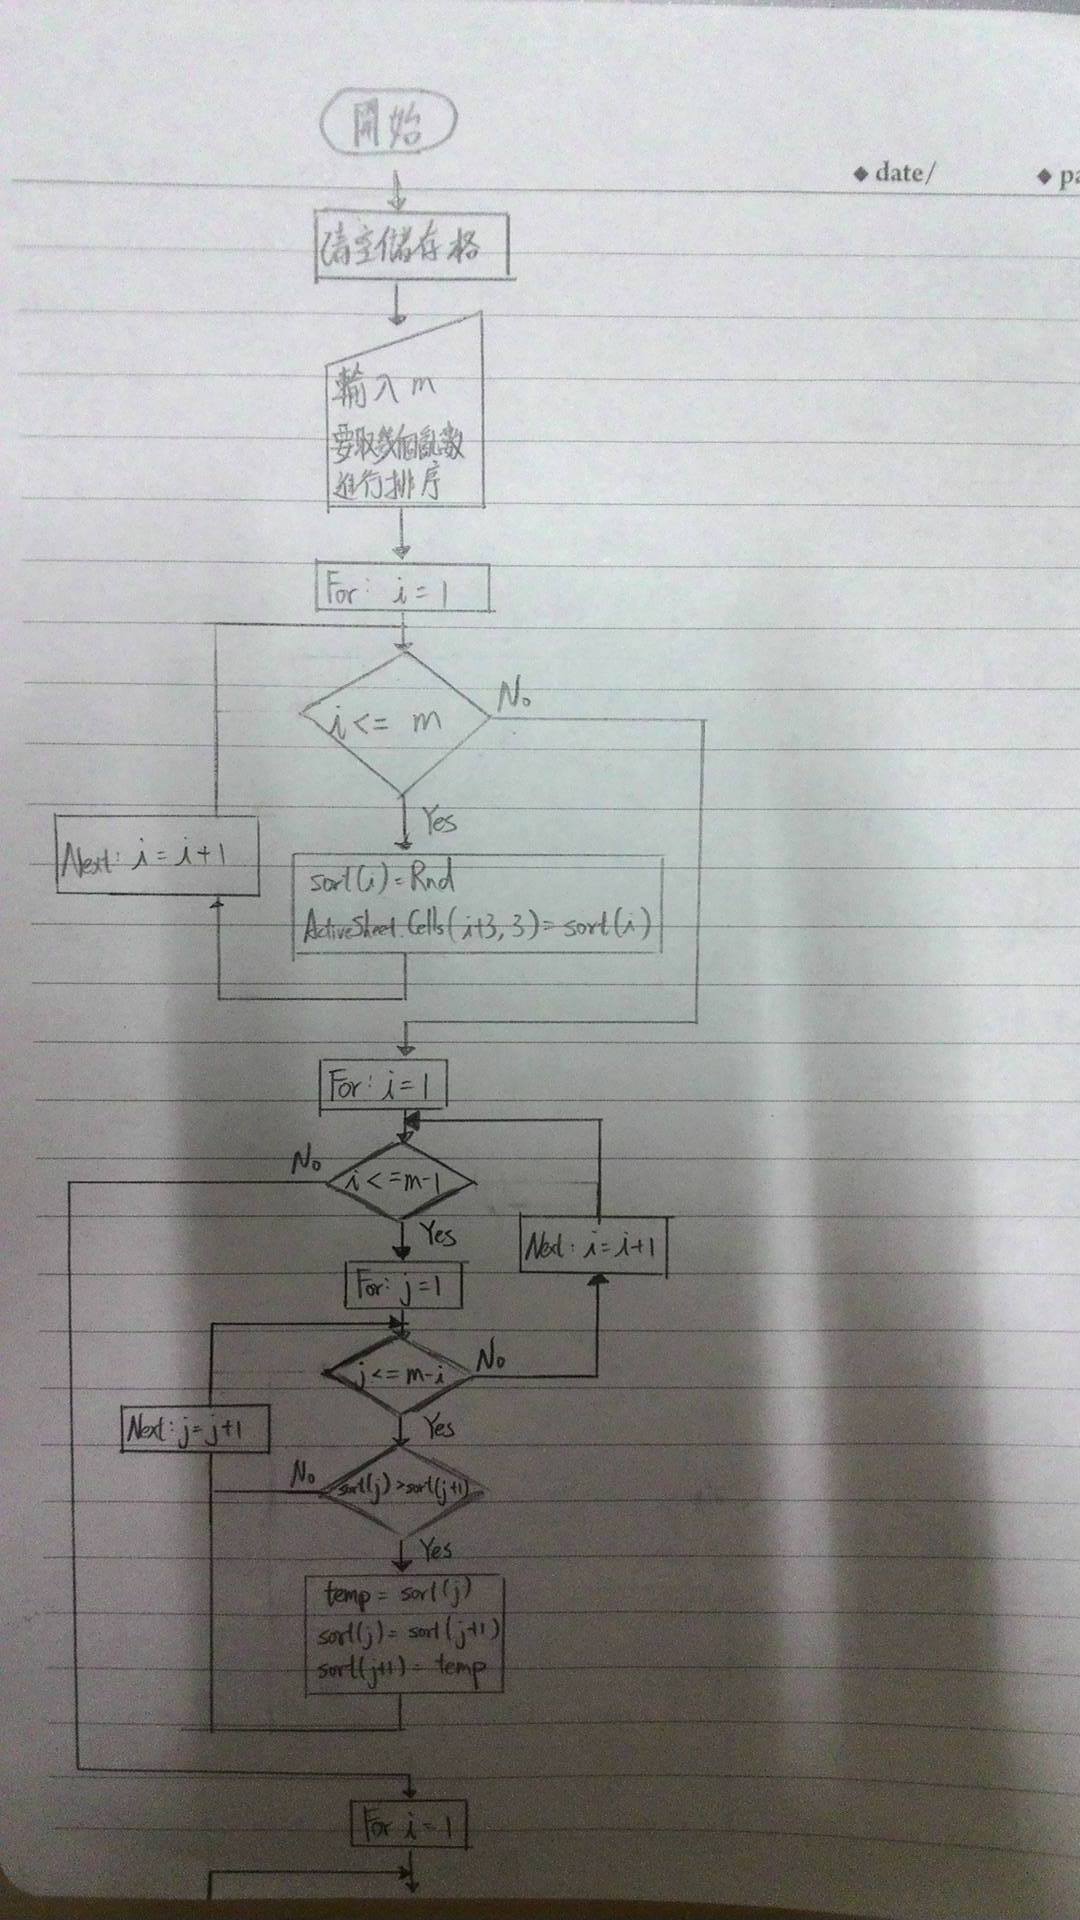 開始
◆ date/
◆ pa
清空儲存格
輸入 m
要取幾個亂數
進行排序
For: i = 1
i <= m
No
Yes
Next: i = i+1
sort(i) = Rnd
ActiveSheet.Cells(i+3, 3) = sort(i)
For: i = 1
No
i <= m-1
Yes
Next: i = i+1
For: j = 1
j <= m-i
No
Yes
Next: j = j+1
No
sort(j) > sort(j+1)
Yes
temp = sort(j)
sort(j) = sort(j+1)
sort(j+1) = temp
For i = 1